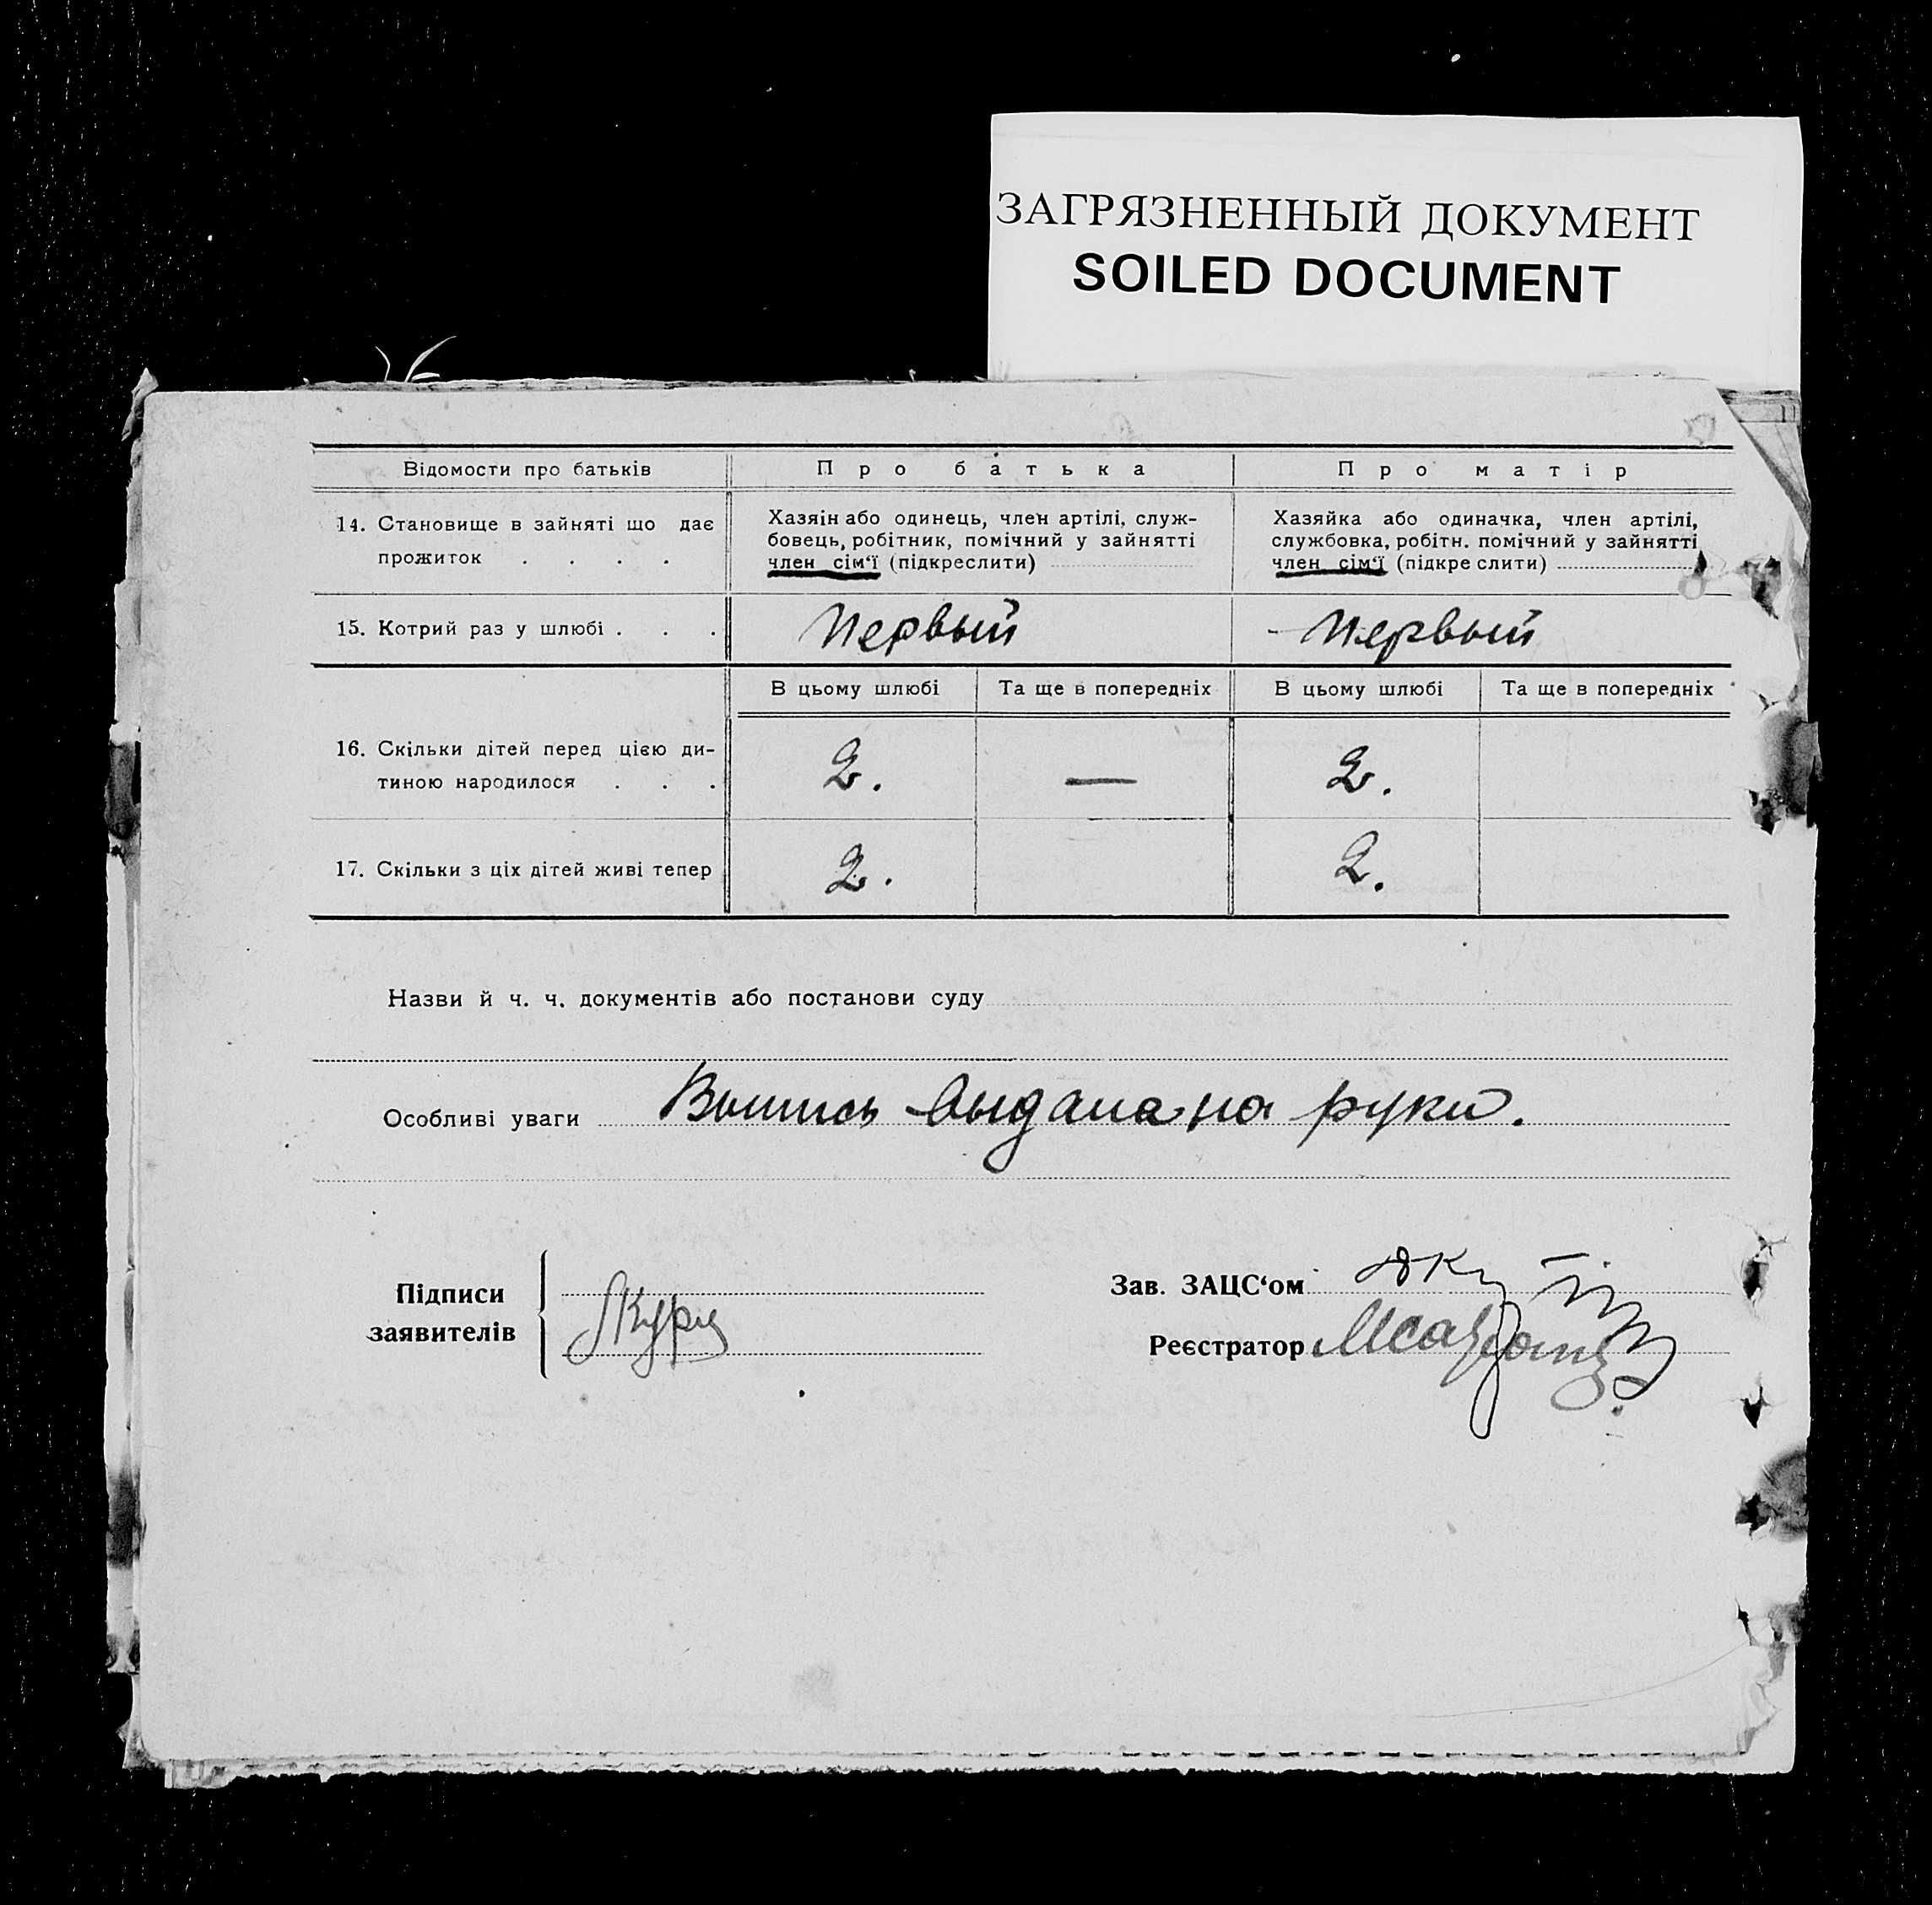 ЗАГРЯЗНЕННЫЙ ДОКУМЕНТ
SOILED DOCUMENT
Відомости про батьків
Про батька
Про матір
14. Становище в зайняті що дає
прожиток . . . .
Хазяін або одинець, член артілі, служ-
бовець, робітник, помічний у зайнятті
член сім‘ї (підкреслити)
Хазяйка або одиначка, член артілі,
службовка, робітн. помічний у зайнятті
член сім‘ї (підкре слити)
15. Котрий раз у шлюбі . . .
Первый
Первый
В цьому шлюбі
Та ще в попередніх
В цьому шлюбі
Та ще в попередніх
16. Скільки дітей перед цією ди-
тиною народилося . . .
2.
—
2.
17. Скільки з ціх дітей живі тепер
2.
2.
Назви й ч. ч. документів або постанови суду
Особливі уваги Выпись выдана на руки.
Підписи
заявителів
Зав. ЗАЦС‘ом
Реєстратор